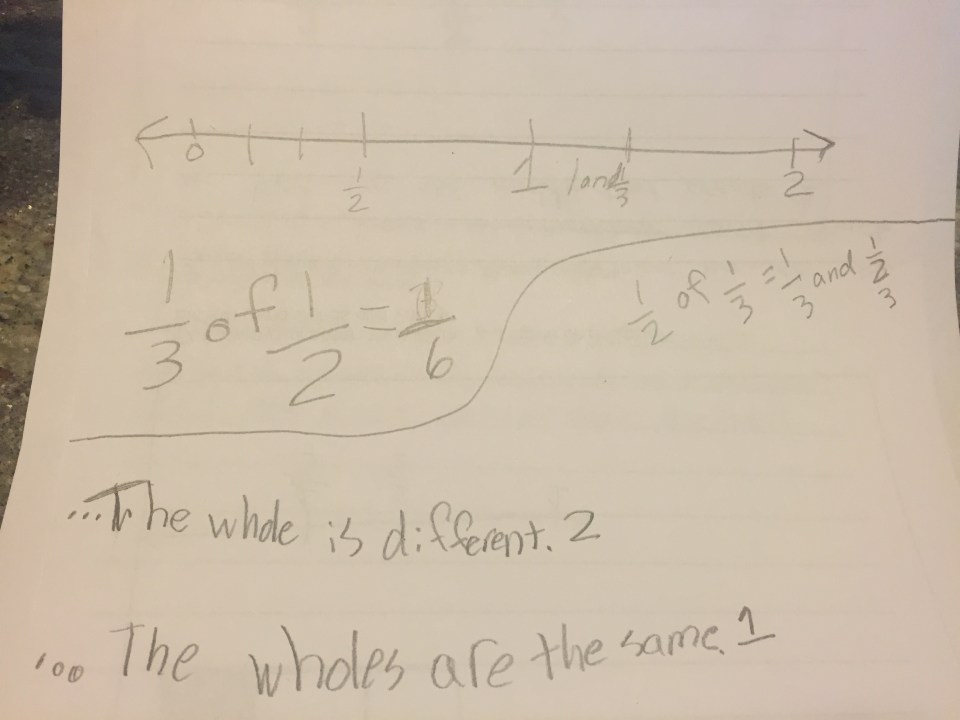 0 1/2 1 1and 1/3 2
1/3 of 1/2 = 1/6
1/2 of 1/3 = 1/3 and 1/2/3
...The whole is different. 2
...The wholes are the same. 1